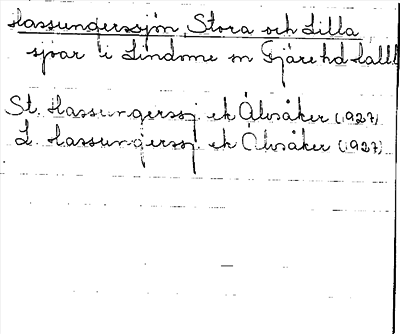 Hassungerssjön, Stora och Lilla
sjöar i Lindome sn Fjäre hd Hall
St. Hassungerssj. ek Älvsåker (1927)
L. Hassungerssj. ek Älvsåker (1927)